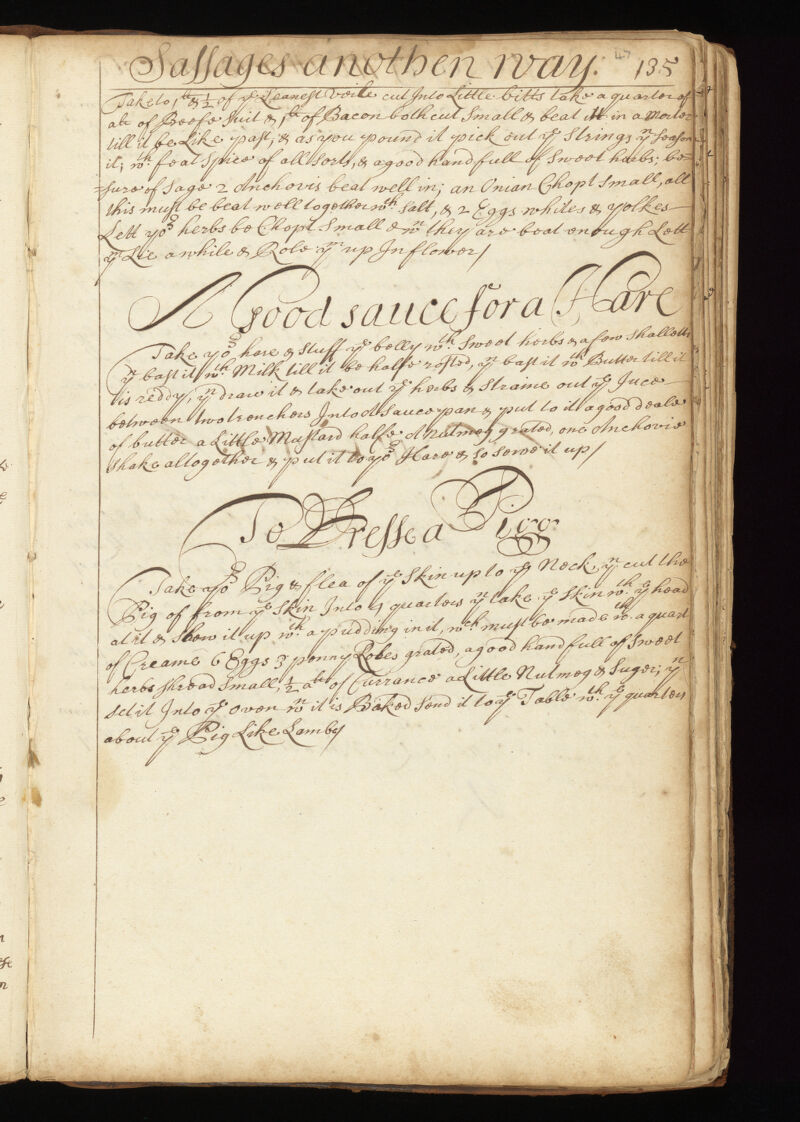 Sassages another way. 47 135
Take to 1ll & ½ of ye Leanest Veile cut Into Little bitts take a quarter of
a ll of Beofe Suit & 1ll of Bacon both cut small & beat it in a Morter
till it be Like past, & as you pound it pick out ye Strings yn season
it; wth. foat Spice of all Sorts, & a good handfull of Sweet herbs; be
=sure of Sage 2 Anchovis beat well in; an Onian Chopt Small, all
this must be beat well together wth. Salt, & 2 Eggs whites & yolkes
Lett yor herbs be Chopt Small & wn they are beat enough Lett
ym Lie a while & Role ym up In flower/
A Good sauce for a Hare
Take yor hare & stuff ye belly wth. Sweet herbs & a few shallotts
yn bast it wth Milk till it be halfe rosted, yn bast it wth Butter till it
is reddy, yn draw it & take out ye herbs & straine out ye Juce
between two trenchers Into A Sauce pan & put to it a good deale
of butter a Little Mustard halfe A Nutmeg grated, one Anchovie
shake altogether & put it to yor Hare & so serve it up/
To Dresse a Pigg
Take yor Pig & flea of ye Skin up to ye Neck, yn cut the
Pig of from ye Skin Into 4 quarters yn take ye Skin wth. ye head
at it & Sow it up wth. a pudding in it, wch. must be made wth. a quart
of Creame 6 Eggs 3 penny Lobes grated, a good handfull of Sweet
herbs shread small, ½ a ll of Currance a Little Nutmeg & Suger, yn
set it Into ye oven wn it is Baked send it to ye Table wth. ye quarters
about ye Pig Like Lamb/